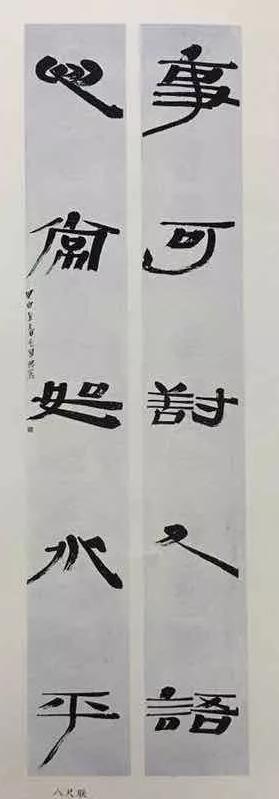 事可對人語
心常如水平
八尺联